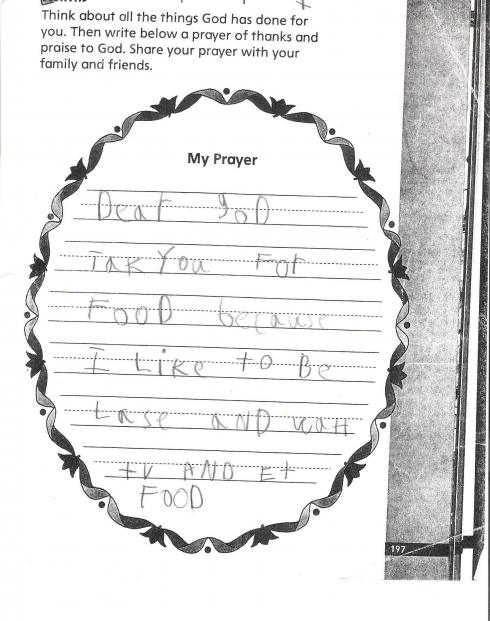 Think about all the things God has done for
you. Then write below a prayer of thanks and
praise to God. Share your prayer with your
family and friends.
My Prayer
Dear goD
Tak You For
FooD because
I Like to Be
Lase aND watt
tv AND Et
FOOD
197